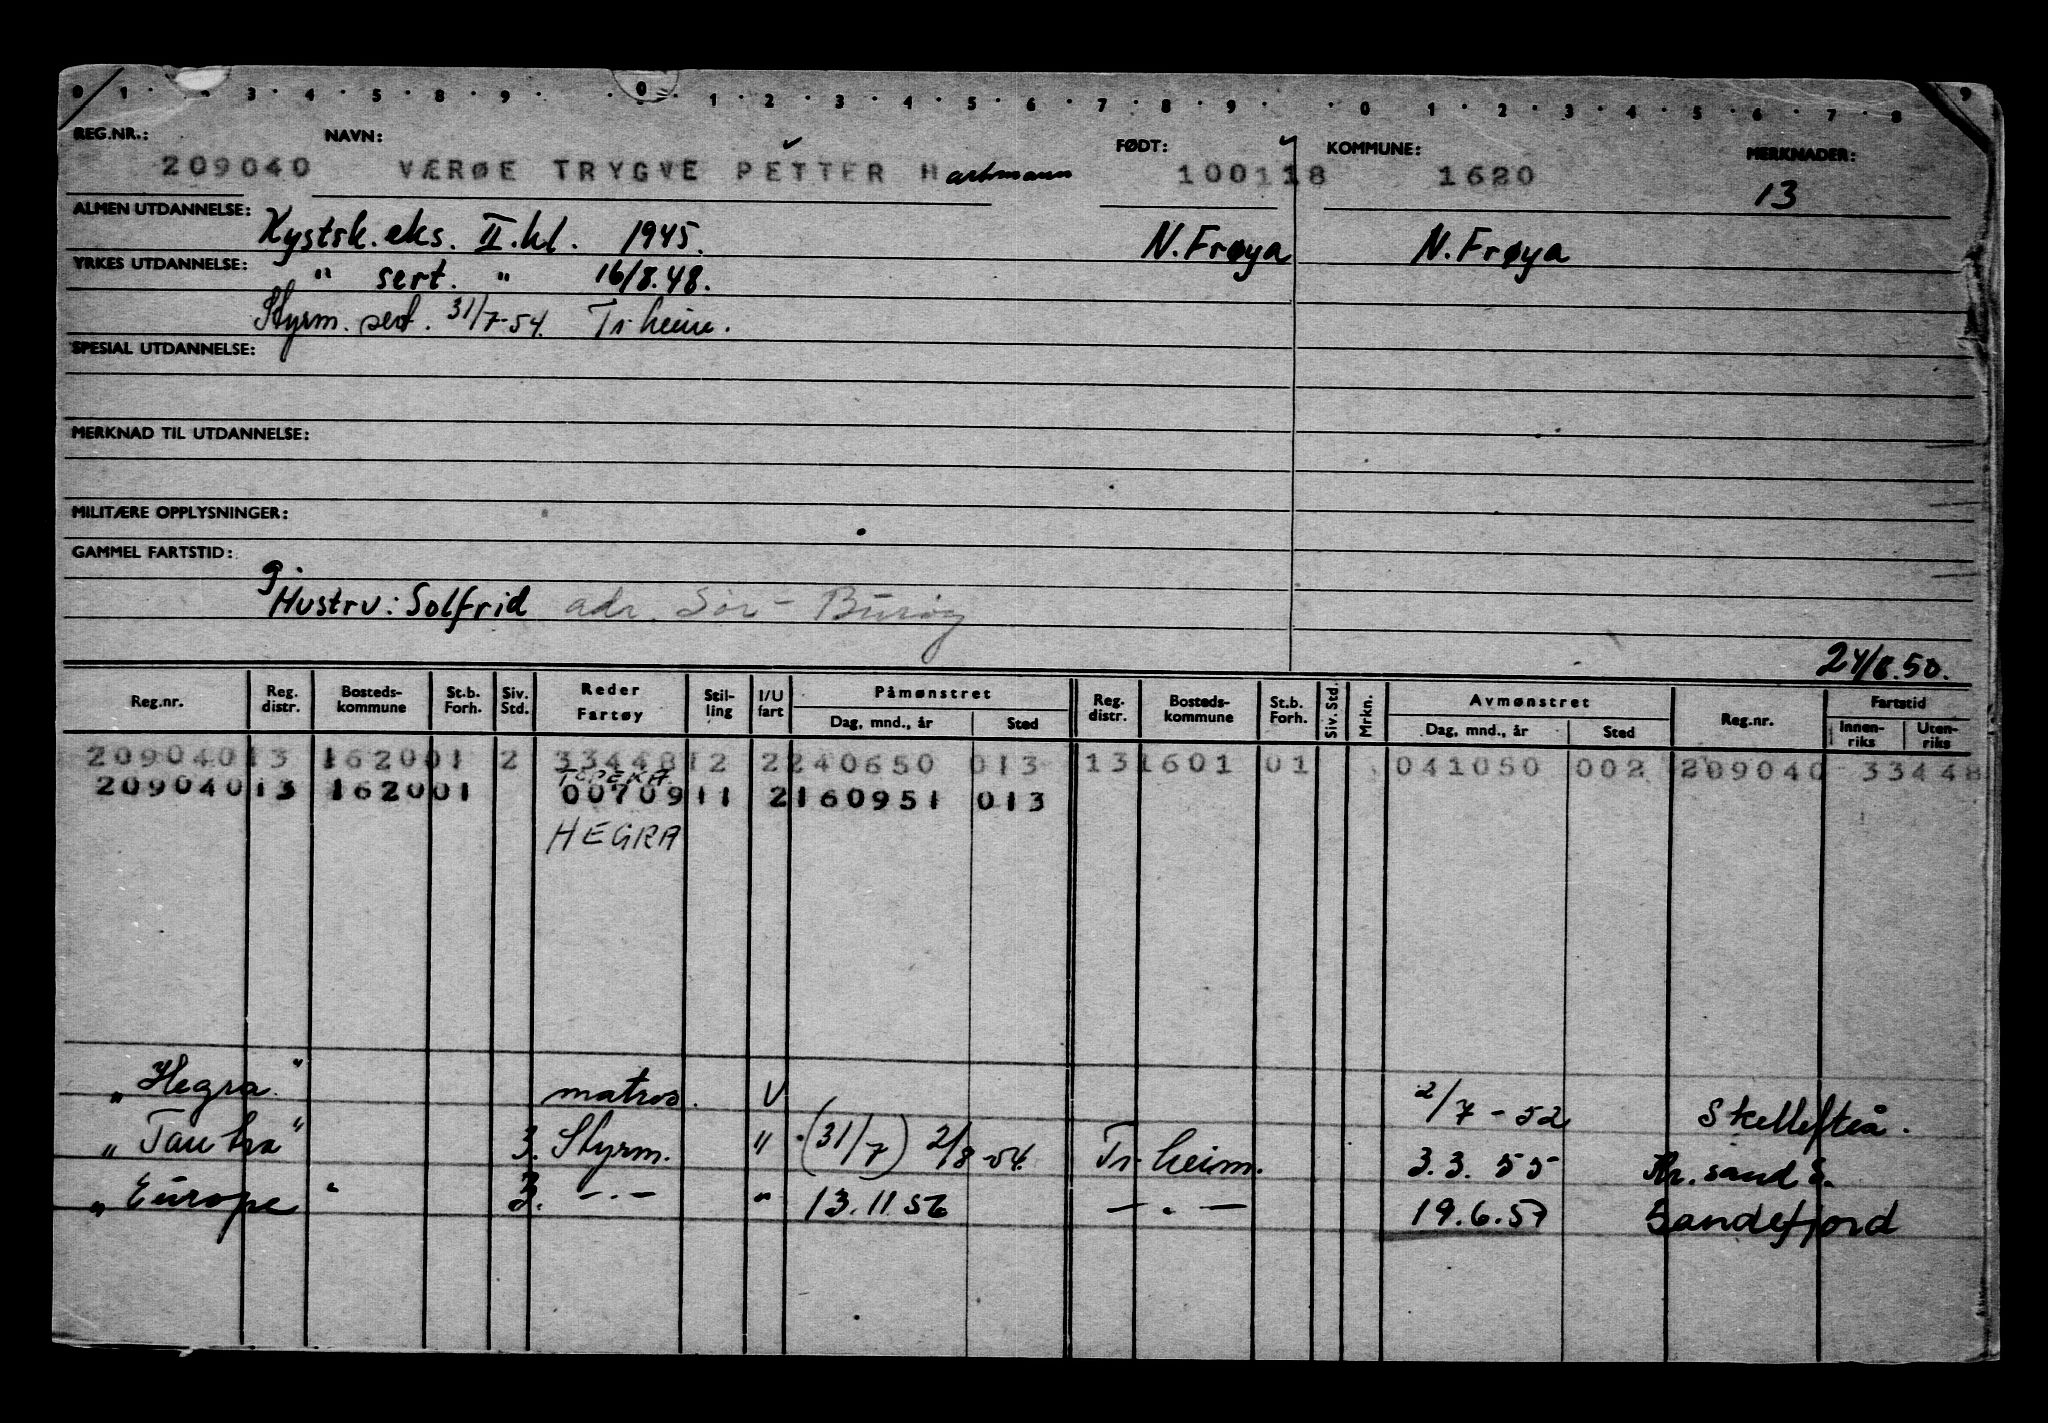 0 1 · · 3 · 4 · 5 · 8 · 9 · · 0 · 1 · 2 · 3 · 4 · 5 · 6 · 7 · 8 · 9 · · 0 · 1 · 2 · 3 · 4 · 5 · 6 · 7 · 8 9
REG.NR.: NAVN: FØDT: KOMMUNE: MERKNADER:
209040 VÆRØE TRYGVE PETTER Hartmann 100118 1620 13
ALMEN UTDANNELSE: Kystsk.eks. II.kl. 1945. N.Frøya N.Frøya
YRKES UTDANNELSE: " sert. " 16/8.48.
Styrm. sert. 31/7-54. Tr.heim.
SPESIAL UTDANNELSE:
MERKNAD TIL UTDANNELSE:
MILITÆRE OPPLYSNINGER:
GAMMEL FARTSTID:
g.
Hustru: Solfrid adr. Sør-Burøy
24/8.50.
Reg.nr. Reg. distr. Bosteds-kommune St.b. Forh. Siv. Std. Reder Fartøy Stil-ling I/U fart Påmønstret Dag, mnd., år Sted Reg. distr. Bosteds-kommune St.b. Forh. Siv. Std. Mrkn. Avmønstret Dag, mnd., år Sted Reg.nr. Fartstid Innen-riks Uten-riks
209040 13 1620 01 2 33448 12 2 240650 013 13 1601 01 041050 002 209040 33448
TOPEKA
209040 13 1620 01 00709 11 2 160951 013
HEGRA
"Hegra" matros. U 2/7-52 Skellefteå.
"Tautra" 3. Styrm. " (31/7) 2/8-54. Tr.heim. 3.3.55 Kr.sand S.
"Europe" 3. -.- " 13.11.56 -.- 19.6.57 Sandefjord